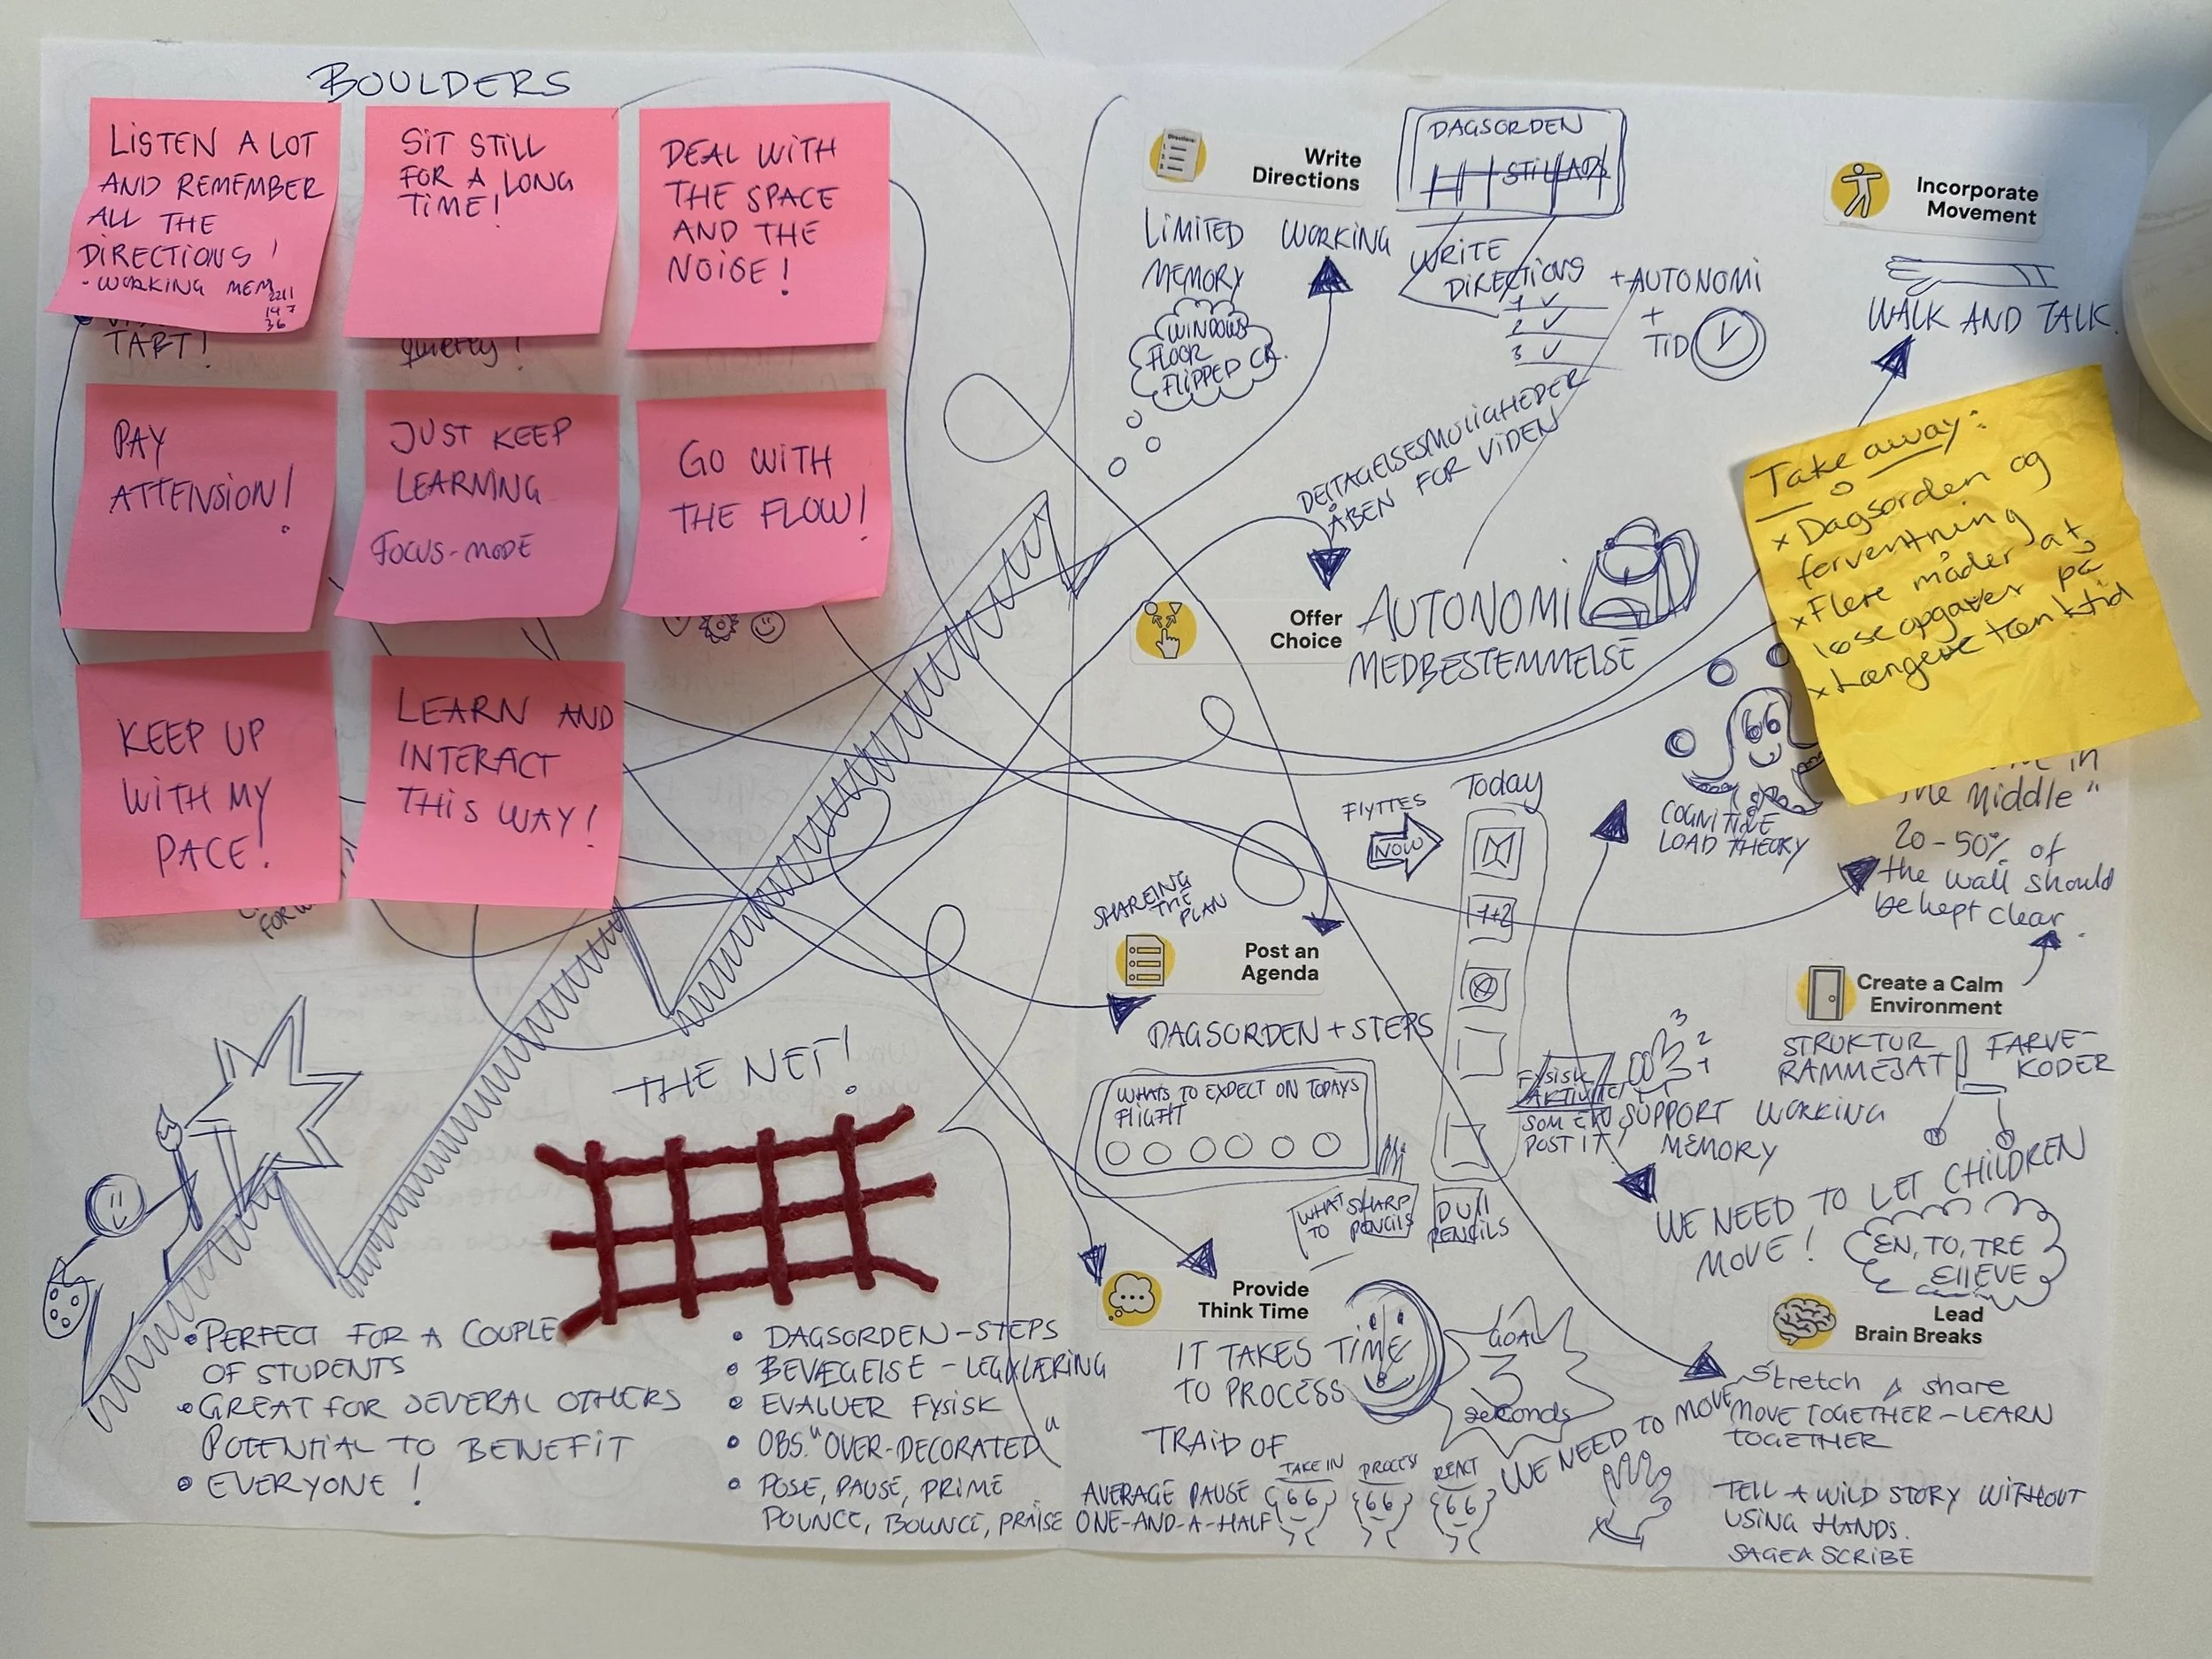 BOULDERS
LISTEN A LOT
AND REMEMBER
ALL THE
DIRECTIONS!
- WORKING MEM
2211
147
36
TART!
SIT STILL
FOR A LONG
TIME!
quietly!
DEAL WITH
THE SPACE
AND THE
NOISE!
PAY
ATTENSION!
JUST KEEP
LEARNING
FOCUS-MODE
GO WITH
THE FLOW!
KEEP UP
WITH MY
PACE!
LEARN AND
INTERACT
THIS WAY!
THE NET!
PERFECT FOR A COUPLE
OF STUDENTS
GREAT FOR SEVERAL OTHERS
POTENTIAL TO BENEFIT
EVERYONE!
DAGSORDEN-STEPS
BEVÆGELSE - LEG/LÆRING
EVALUER FYSISK
OBS. "OVER-DECORATED"
POSE, PAUSE, PRIME
POUNCE, BOUNCE, PRAISE
Directions:
Write
Directions
LIMITED WORKING
MEMORY
WINDOWS
FLOOR
FLIPPED CR.
DAGSORDEN
STILLADS
WRITE
DIRECTIONS
1 ✓
2 ✓
3 ✓
+AUTONOMI
+
TID
Incorporate
Movement
WALK AND TALK.
DELTAGELSESMULIGHEDER
ÅBEN FOR VIDEN
Offer
Choice
AUTONOMI
MEDBESTEMMELSE
Take away:
x Dagsorden og
forventning
x Flere måder at
løse opgaver på
x Længere tænketid
COGNITIVE
LOAD THEORY
in
the Middle"
20-50% of
the wall should
be kept clear.
Today
FLYTTES
NOW
1+2
SHAREING
THE
PLAN
Post an
Agenda
DAGSORDEN + STEPS
WHATS TO EXPECT ON TODAYS
FLIGHT
WHAT
TO
SHARP
PENCILS
DULL
PENCILS
FYSISK
AKTIVITET
SOM EN
POST IT!
3
2
1
SUPPORT WORKING
MEMORY
Create a Calm
Environment
STRUKTUR
RAMMESAT
FARVE-
KODER
WE NEED TO LET CHILDREN
MOVE!
EN, TO, TRE
ELLEVE
Provide
Think Time
IT TAKES TIME
TO PROCESS
GOAL
3
seconds
TRAID OF
TAKE IN
PROCESS
REACT
AVERAGE PAUSE
ONE-AND-A-HALF
WE NEED TO MOVE
Lead
Brain Breaks
Stretch & share
MOVE TOGETHER - LEARN
TOGETHER
TELL A WILD STORY WITHOUT
USING HANDS.
SAGE A SCRIBE